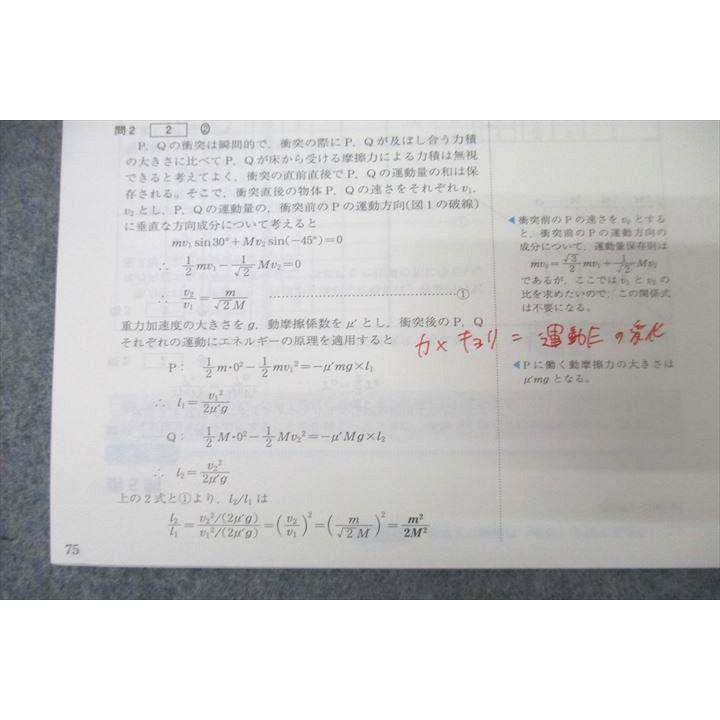 問2 2 ②
P，Qの衝突は瞬間的で，衝突の際にP，Qが及ぼし合う力積
の大きさに比べてP，Qが床から受ける摩擦力による力積は無視
できると考えてよく，衝突の直前直後でP，Qの運動量の和は保
存される。そこで，衝突直後の物体P，Qの速さをそれぞれv₁，
v₂とし，P，Qの運動量の，衝突前のPの運動方向(図1の破線)
に垂直な方向成分について考えると
mv₁ sin 30°+Mv₂ sin(−45°)=0
∴ 1/2 mv₁ − 1/√2 Mv₂=0
∴ v₂/v₁ = m/(√2 M) ……………………………①
重力加速度の大きさをg，動摩擦係数をμ′とし，衝突後のP，Q
それぞれの運動にエネルギーの原理を適用すると
P： 1/2 m・0² − 1/2 mv₁² = −μ′mg×l₁
∴ l₁ = v₁²/(2μ′g)
Q： 1/2 M・0² − 1/2 Mv₂² = −μ′Mg×l₂
∴ l₂ = v₂²/(2μ′g)
上の2式と①より，l₂/l₁は
l₂/l₁ = {v₂²/(2μ′g)}/{v₁²/(2μ′g)} = (v₂/v₁)² = (m/(√2 M))² = m²/2M²
75
◀衝突前のPの速さをv₀とする
と，衝突前のPの運動方向の
成分について，運動量保存則は
mv₀ = √3/2 mv₁ + 1/√2 Mv₂
であるが，ここではv₁とv₂の
比を求めたいので，この関係式
は不要になる。
力×キョリ = 運動Eの変化
◀Pに働く動摩擦力の大きさは
μ′mgとなる。